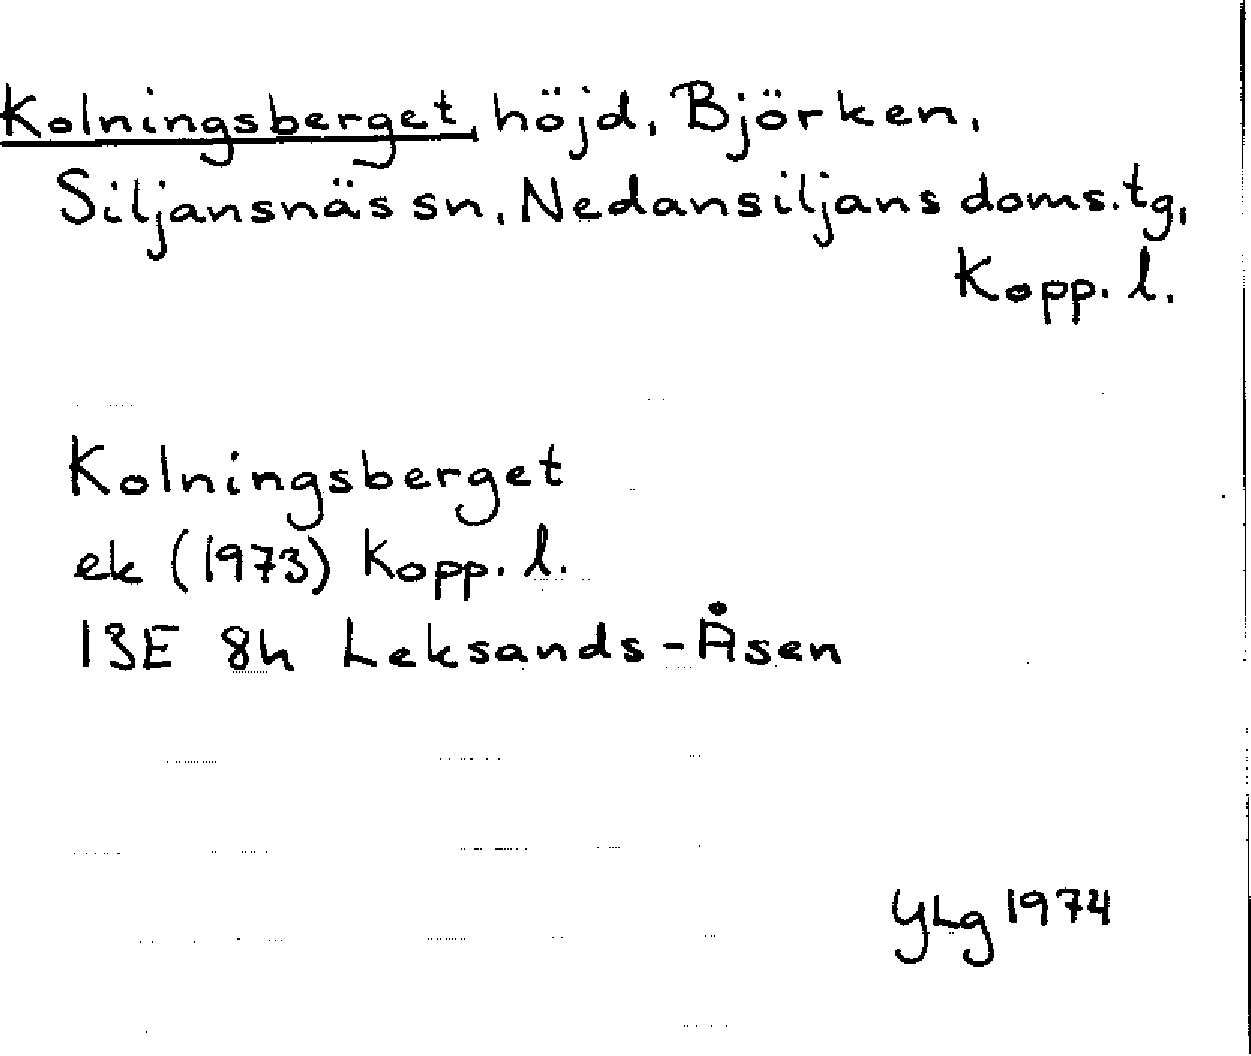 Kolningsberget, höjd, Björken,
Siljansnäs sn, Nedansiljans doms.tg,
Kopp. l.
Kolningsberget
ek (1973) Kopp. l.
13E 8h Leksands-Åsen
YLg 1974